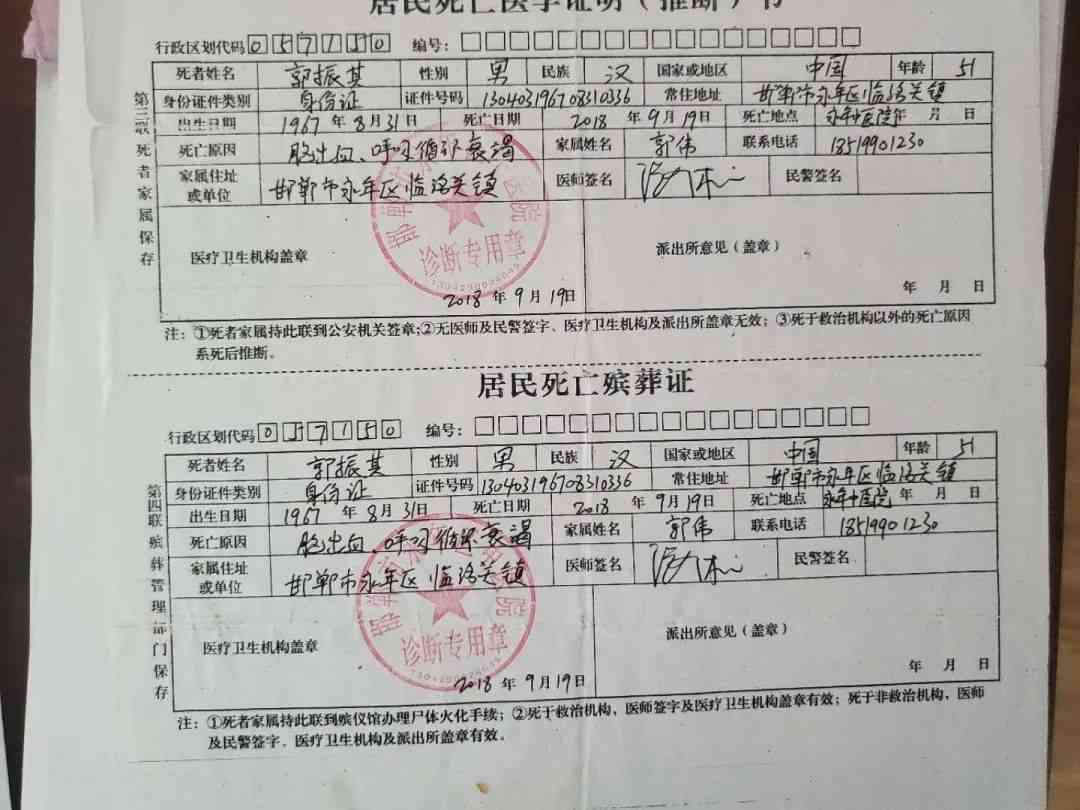 居民死亡医学证明（推断）书
行政区划代码 0 5 7 1 5 0 编号：□□□□□□□□□□□□□□□□□
死者姓名 郭振其 性别 男 民族 汉 国家或地区 中国 年龄 51
身份证件类别 身份证 证件号码 130403196708310336 常住地址 邯郸市永年区临洺关镇
出生日期 1967 年 8 月 31 日 死亡日期 2018 年 9 月 19 日 死亡地点 永年中医院 年 月 日
死亡原因 脑出血、呼吸循环衰竭 家属姓名 郭伟 联系电话 18519901230
家属住址或单位 邯郸市永年区临洺关镇 医师签名 民警签名
医疗卫生机构盖章 派出所意见（盖章）
诊断专用章
2018 年 9 月 19 日 年 月 日
第三联 死者家属保存
注：①死者家属持此联到公安机关签章；②无医师及民警签字、医疗卫生机构及派出所盖章无效；③死于救治机构以外的死亡原因
系死后推断。
居民死亡殡葬证
行政区划代码 0 5 7 1 5 0 编号：□□□□□□□□□□□□□□□□□
死者姓名 郭振其 性别 男 民族 汉 国家或地区 中国 年龄 51
身份证件类别 身份证 证件号码 130403196708310336 常住地址 邯郸市永年区临洺关镇
出生日期 1967 年 8 月 31 日 死亡日期 2018 年 9 月 19 日 死亡地点 永年中医院 年 月 日
死亡原因 脑出血、呼吸循环衰竭 家属姓名 郭伟 联系电话 18519901230
家属住址或单位 邯郸市永年区临洺关镇 医师签名 民警签名
医疗卫生机构盖章 派出所意见（盖章）
诊断专用章
2018 年 9 月 19 日 年 月 日
第四联 殡葬管理部门保存
注：①死者家属持此联到殡仪馆办理尸体火化手续；②死于救治机构、医师签字及医疗卫生机构盖章有效；死于非救治机构、医师
及民警签字、医疗卫生机构及派出所盖章有效。